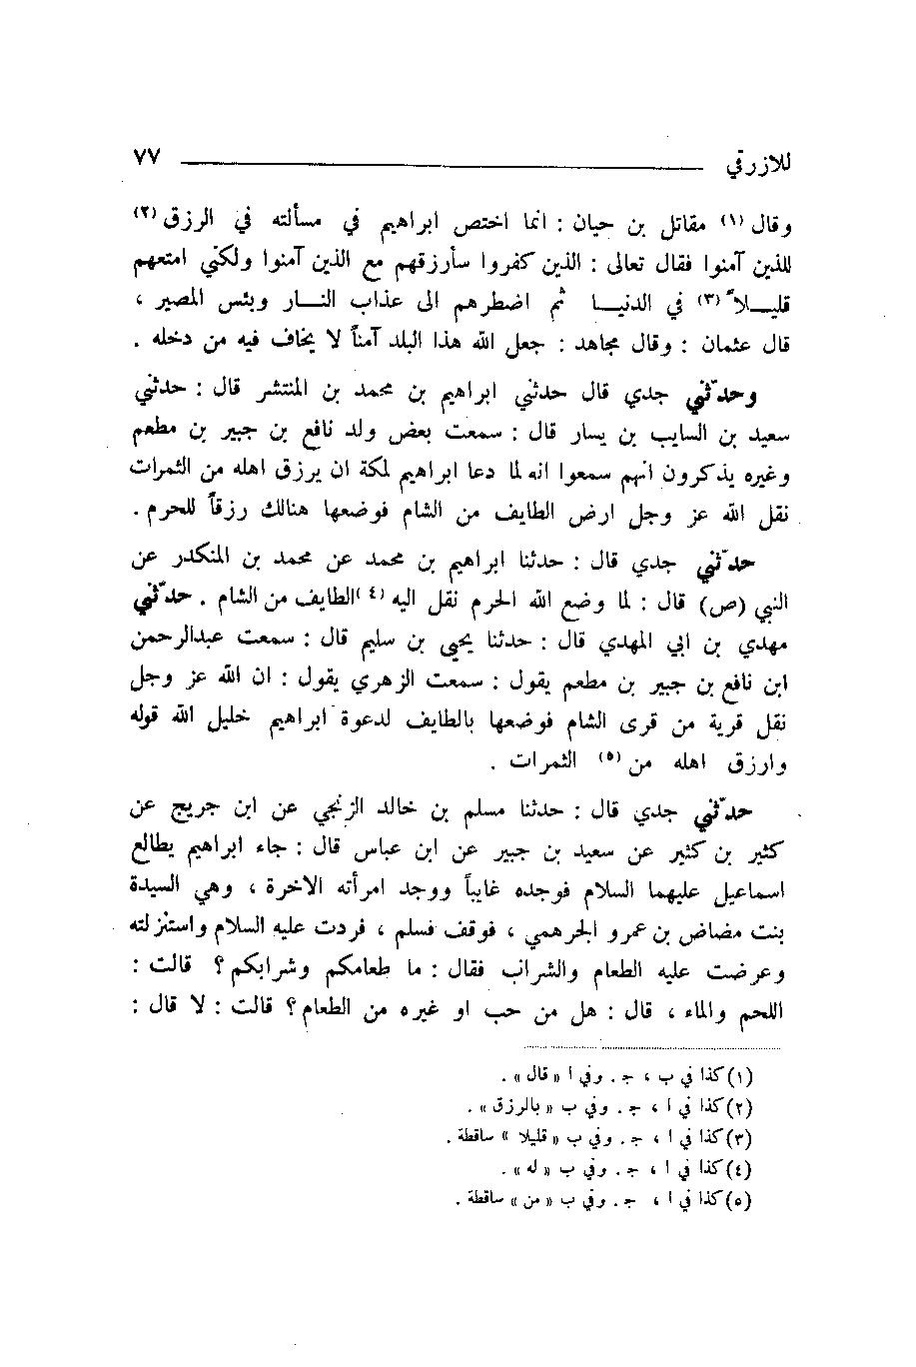 للازرقي ٧٧
وقال (١) مقاتل بن حيان : انما اختص ابراهيم في مسألته في الرزق (٢)
للذين آمنوا فقال تعالى : الذين كفروا سأرزقهم مع الذين آمنوا ولكني امتعهم
قليـلاً (٣) في الدنيـا ثم اضطرهم الى عذاب النـار وبئس المصير ،
قال عثمان : وقال مجاهد : جعل الله هذا البلد آمناً لا يخاف فيه من دخله .
وحدّثني جدي قال حدثني ابراهيم بن محمد بن المنتشر قال : حدثني
سعيد بن السايب بن يسار قال : سمعت بعض ولد نافع بن جبير بن مطعم
وغيره يذكرون انهم سمعوا انه لما دعا ابراهيم لمكة ان يرزق اهله من الثمرات
نقل الله عز وجل ارض الطايف من الشام فوضعها هنالك رزقاً للحرم .
حدّثني جدي قال : حدثنا ابراهيم بن محمد عن محمد بن المنكدر عن
النبي (ص) قال : لما وضع الله الحرم نقل اليه (٤) الطايف من الشام . حدّثني
مهدي بن ابي المهدي قال : حدثنا يحيى بن سليم قال : سمعت عبدالرحمن
ابن نافع بن جبير بن مطعم يقول : سمعت الزهري يقول : ان الله عز وجل
نقل قرية من قرى الشام فوضعها بالطايف لدعوة ابراهيم خليل الله قوله
وارزق اهله من (٥) الثمرات .
حدّثني جدي قال : حدثنا مسلم بن خالد الزنجي عن ابن جريج عن
كثير بن كثير عن سعيد بن جبير عن ابن عباس قال : جاء ابراهيم يطالع
اسماعيل عليهما السلام فوجده غايباً ووجد امرأته الاخرة ، وهي السيدة
بنت مضاض بن عمرو الجرهمي ، فوقف فسلم ، فردت عليه السلام واستنزلته
وعرضت عليه الطعام والشراب فقال : ما طعامكم وشرابكم ؟ قالت :
اللحم والماء ، قال : هل من حب او غيره من الطعام ؟ قالت : لا قال :
(١) كذا في ب ، ج . وفي ا « قال » .
(٢) كذا في ا ، ج . وفي ب « بالرزق » .
(٣) كذا في ا ، ج . وفي ب « قليلا » ساقطة .
(٤) كذا في ا ، ج . وفي ب « له » .
(٥) كذا في ا ، ج . وفي ب « من » ساقطة .